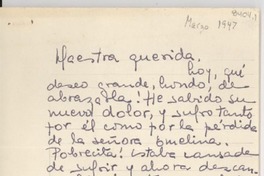 8404.1
Marzo 1947
Maestra querida.
hoy, qué
deseo grande, hondo, de
abrazarla! He sabido su
nuevo dolor, y sufro tanto
por él como por la pérdida
de la señora Emelina.
Pobrecita! Estaba cansada
de sufrir y ahora descan-